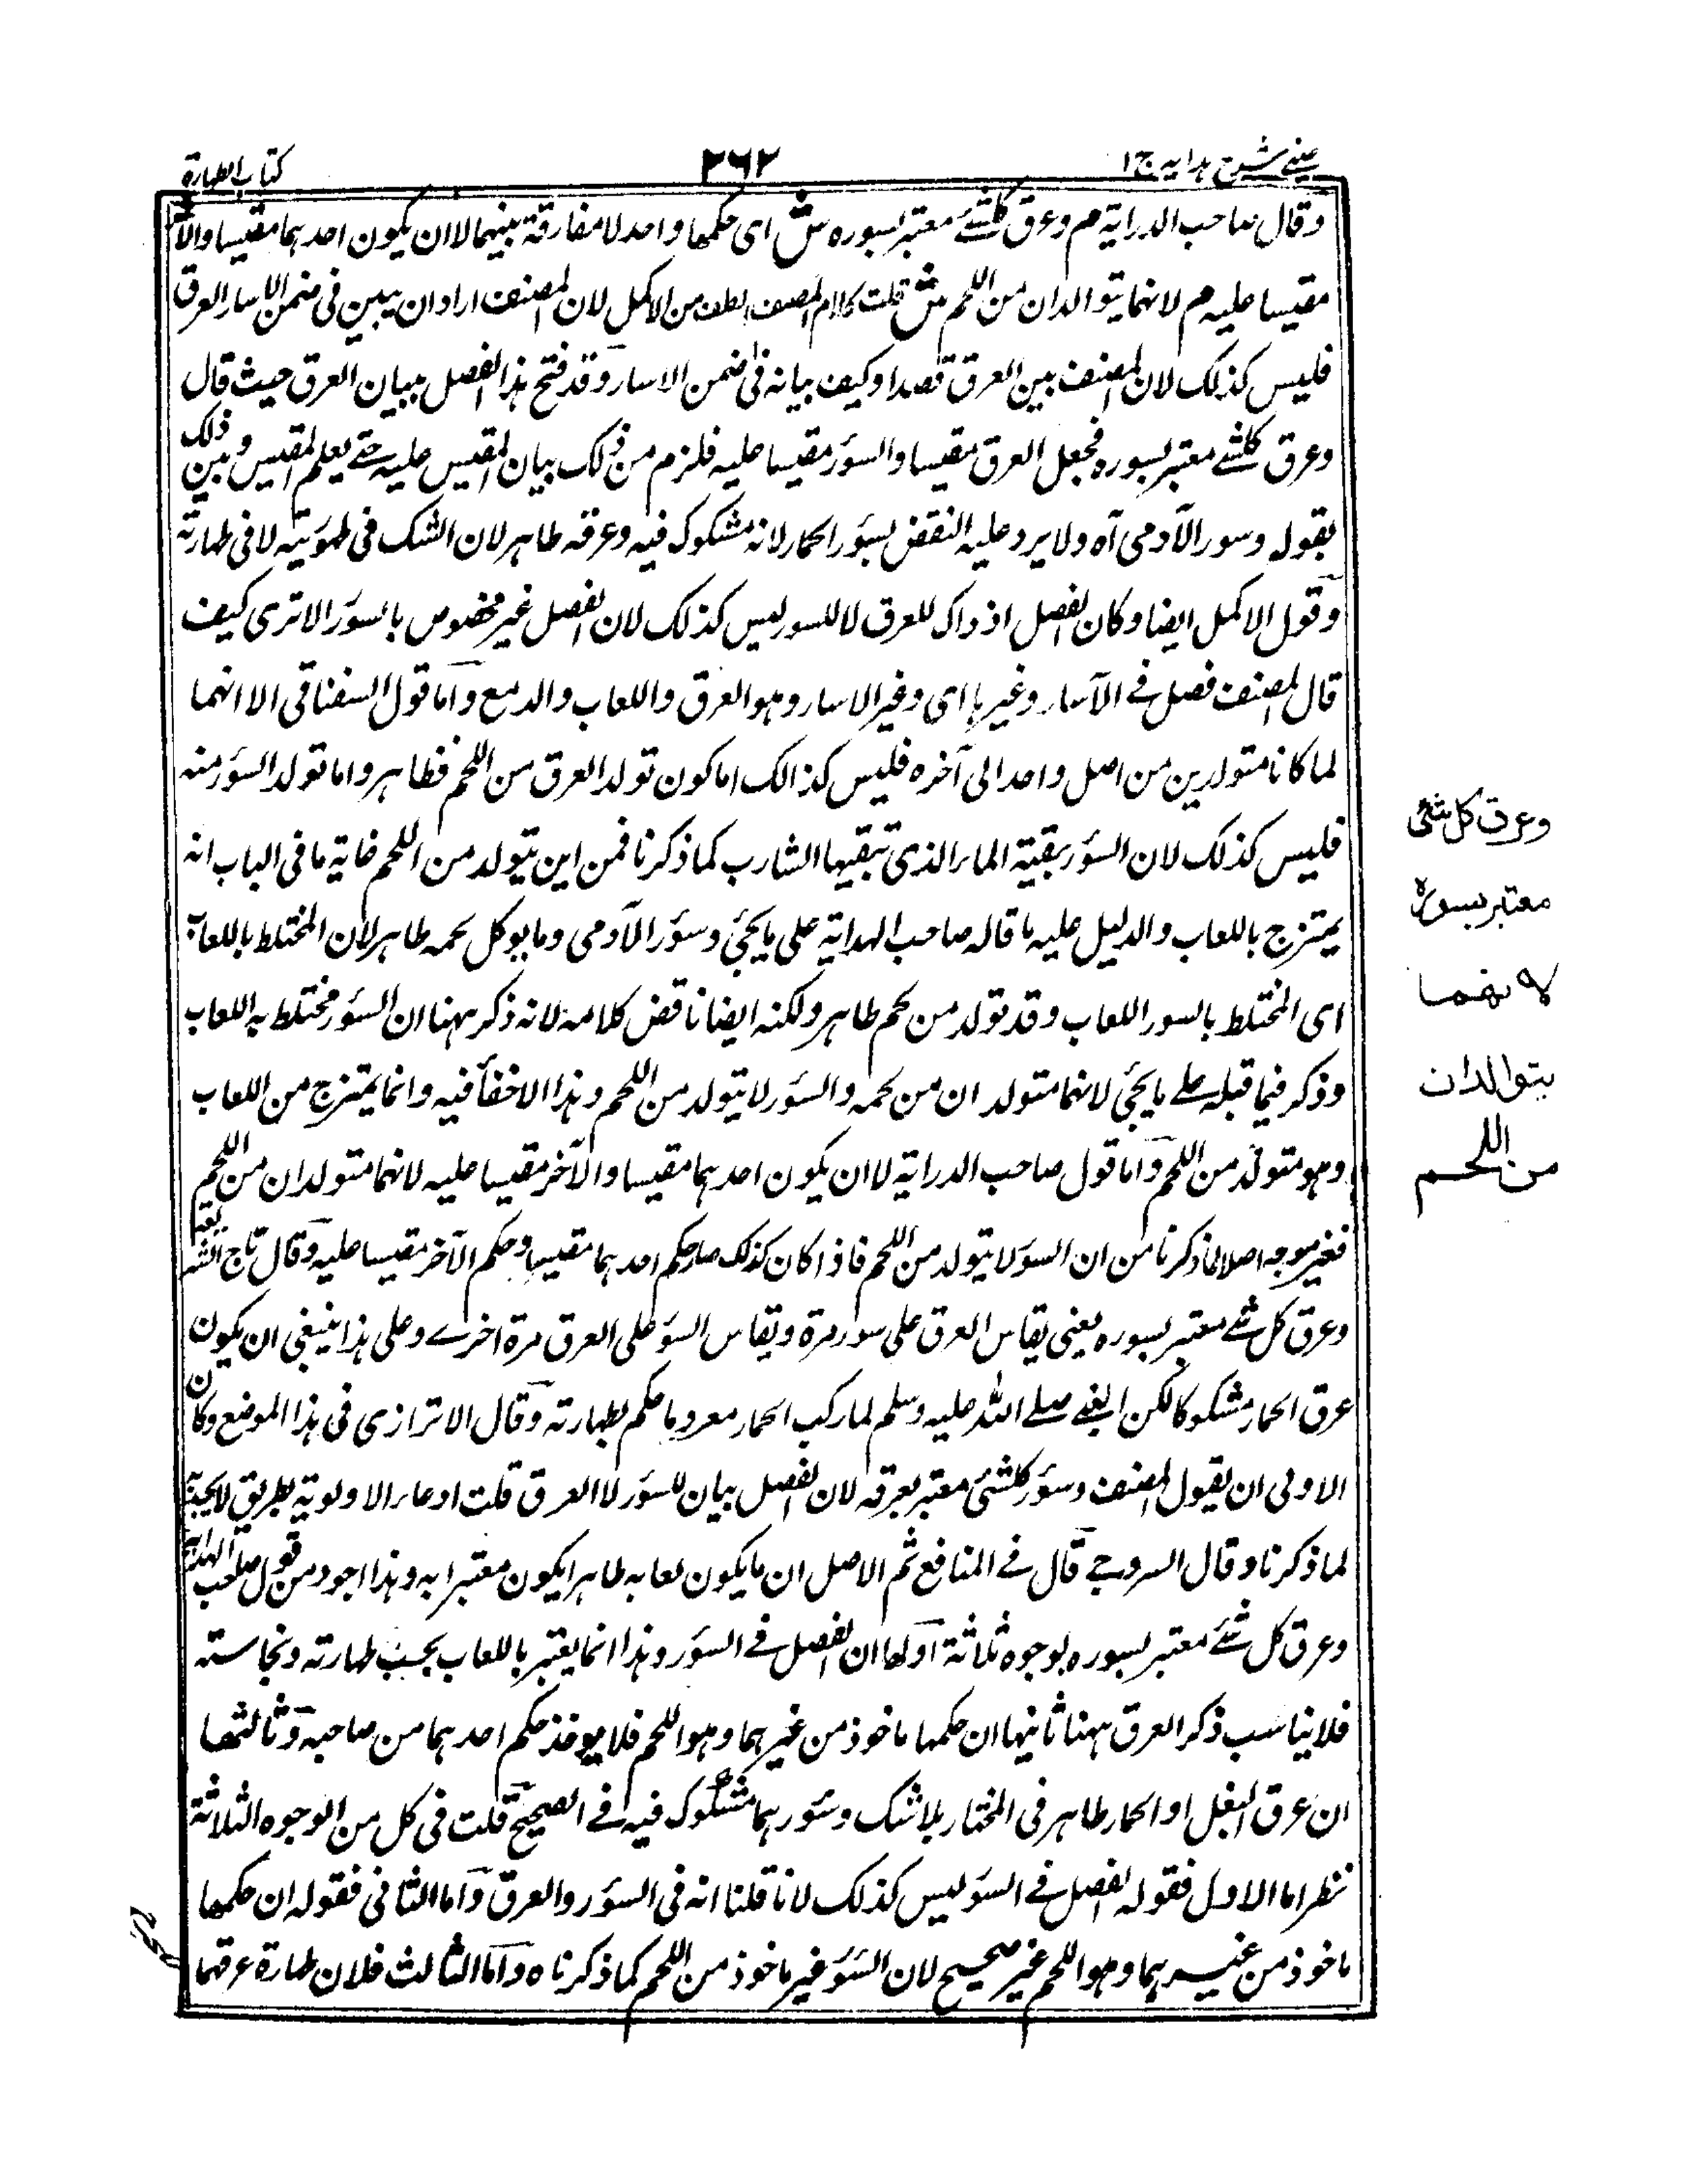 عینی شرح ہدایہ ج ۱
۲۶۲
کتاب الطہارة
وقال صاحب الدرایة م وعرق کل شئ معتبر بسوره ش ای حکمها واحد لا مفارقة بینهما لا ان یکون احدهما مقیسا والآخر
مقیسا علیه م لانهما یتوالدان من اللحم ش قلت کلام المصنف الطف من الاکمل لان المصنف اراد ان یبین فی ضمن الاسار العرق
فلیس کذلک لان المصنف بین العرق قصدا وکیف بیانه فی ضمن الاسار وقد فتح هذا الفصل ببیان العرق حیث قال
وعرق کل شئ معتبر بسوره فجعل العرق مقیسا والسؤر مقیسا علیه فلزم من ذلک بیان المقیس علیه حتے یعلم المقیس وبین ذلک
بقوله وسور الآدمی آه ولا یرد علیه النقض بسؤر الحمار لانه مشکوک فیه وعرقه طاهر لان الشک فی طهوریته لا فی طهارته
وقول الاکمل ایضا وکان الفصل اذ ذاک للعرق لا للسور لیس کذلک لان الفصل غیر مخصوص بالسؤر الا تری کیف
قال المصنف فصل فے الآسار وغیرها ای وغیر الاسار وهو العرق واللعاب والدمع واما قول السغناقی الا انهما
لما کانا متولدین من اصل واحد الی آخره فلیس کذالک اما کون تولد العرق من اللحم فظاهر واما تولد السؤر منه
فلیس کذلک لان السؤر بقیة الماء الذی تبقیها الشارب کما ذکرنا فمن این یتولد من اللحم غایة ما فی الباب انه
یمتزج باللعاب والدلیل علیه ما قاله صاحب الهدایة علی ما یجئ وسؤر الآدمی وما یوکل لحمه طاهر لان المختلط باللعاب
ای المختلط بالسور اللعاب وقد تولد من لحم طاهر ولکنه ایضا ناقض کلامه لانه ذکر ههنا ان السؤر مختلط به اللعاب
وذکر فیما قبله علے ما یجئ لانهما متولد ان من لحمه والسؤر لا یتولد من اللحم وهذا لا خفأ فیه وانما یمتزج من اللعاب
وهو متولد من اللحم واما قول صاحب الدرایة لا ان یکون احدهما مقیسا والآخر مقیسا علیه لانهما متولدان من اللحم
فغیر موجه اصلا لما ذکرنا من ان السؤر لا یتولد من اللحم فاذا کان کذلک صار حکم احدهما مقیسا وحکم الآخر مقیسا علیه وقال تاج الشریعة
وعرق کل شئ معتبر بسوره یعنی یقاس العرق علی سور مرة ویقاس السؤر علی العرق مرة اخرے وعلی هذا ینبغی ان یکون
عرق الحمار مشکوکا لکن النبی صلے الله علیه وسلم لما رکب الحمار معروریا حکم بطهارته وقال الاترازی فی هذا الموضع وکان
الاولی ان یقول المصنف وسؤر کل شئ معتبر بعرقه لان الفصل بیان للسؤر لا العرق قلت ادعاء الاولویة بطریق لا یجئ
لما ذکرنا وقال السروجے قال فے المنافع ثم الاصل ان ما یکون لعابه طاهرا یکون معتبرا به وهذا اجود من قول صاحب الهدایة
وعرق کل شئ معتبر بسوره لوجوه ثلاثة اولها ان الفصل فے السؤر وهذا انما یعتبر باللعاب بحسب طهارته ونجاسته
فلا یناسب ذکر العرق ههنا ثانیها ان حکمها ماخوذ من غیرهما وهو اللحم فلا یوخذ حکم احدهما من صاحبه وثالثها
ان عرق البغل او الحمار طاهر فی المختار بلا شک وسؤرهما مشکوک فیه فے الصحیح قلت فی کل من الوجوه الثلاثة
نظر اما الاول فقوله الفصل فے السؤر لیس کذلک لانا قلنا انه فی السؤر والعرق واما الثانی فقوله ان حکمها
ماخوذ من غیرهما وهو اللحم غیر صحیح لان السؤر غیر ماخوذ من اللحم کما ذکرناه واما الثالث فلان طهارة عرقهما
وعرق کل شئی
معتبر بسوره
لانهما
یتوالدان
من اللحم